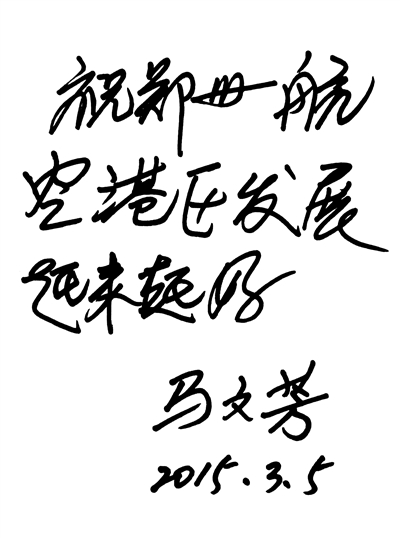 祝郑州航
空港区发展
越来越好
马文芳
2015.3.5